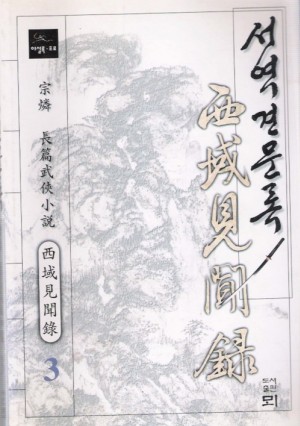 서역견문록
西域見聞錄
宗燐 長篇武俠小說
西域見聞錄
3
도서
출판
뫼